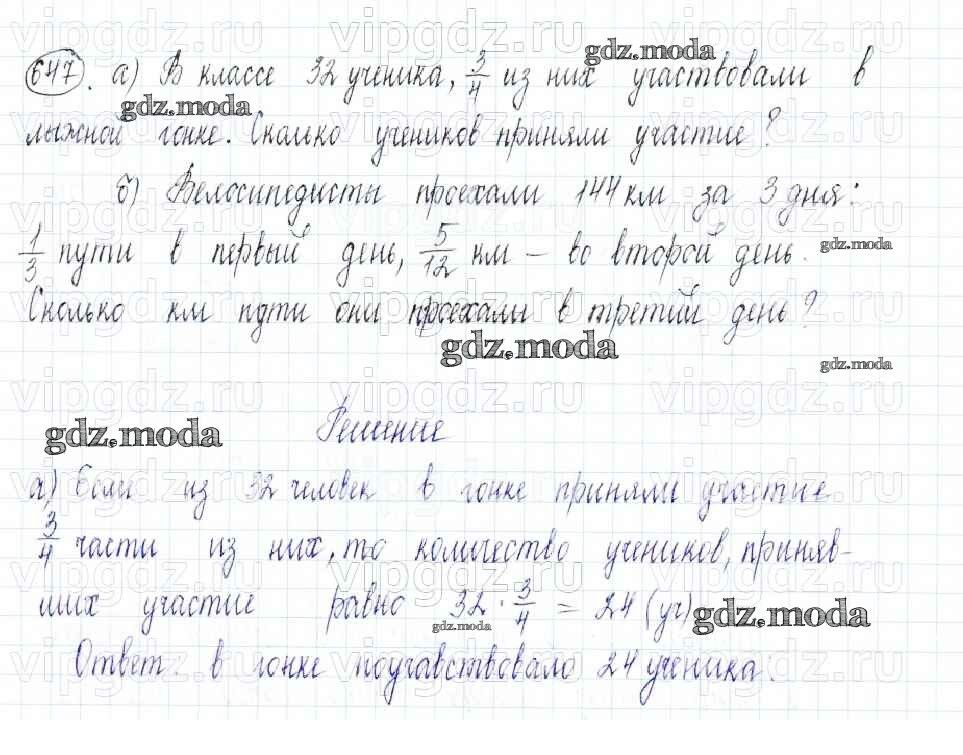 647. а) В классе 32 ученика, 3/4 из них участвовали в
лыжной гонке. Сколько учеников приняли участие?
б) Велосипедисты проехали 144 км за 3 дня:
1/3 пути в первый день, 5/12 км – во второй день.
Сколько км пути они проехали в третий день?
Решение
а) Если из 32 человек в гонке приняли участие
3/4 части из них, то количество учеников, приняв-
ших участие равно 32 · 3/4 = 24 (уч)
Ответ: в гонке поучавствовало 24 ученика.
gdz.moda
gdz.moda
gdz.moda
gdz.moda
gdz.moda
gdz.moda
gdz.moda
gdz.moda
vipgdz.ru